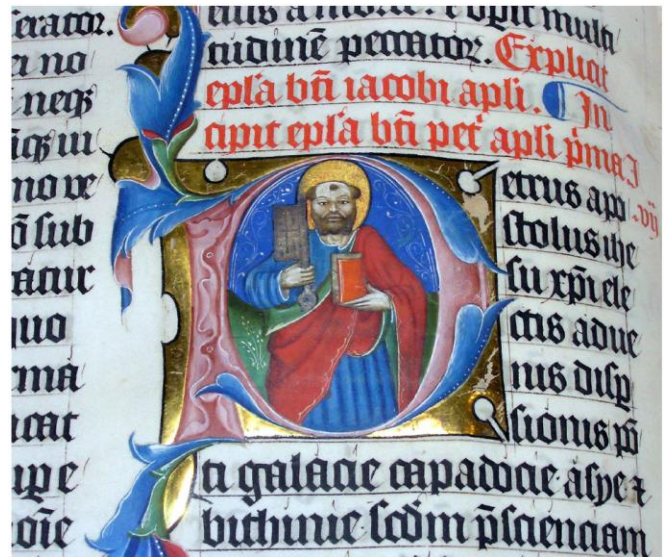 erator.
ei no
neqz
mo ve
õ sub
atur
quo
rma
icat
upe
oīe
tudinē peccatoꝝ. Explicit
epl̄a bt̄i iacobi apl̄i. In
cipit epl̄a bt̄i pet̄ apl̄i p̄ma J
etrus apo
stolus ihe
su xp̄i ele
ctis adue
nis disp̄
sionis pō
ti galacie capadocie asye ⁊
bithinie scd̄m p̄scienciam